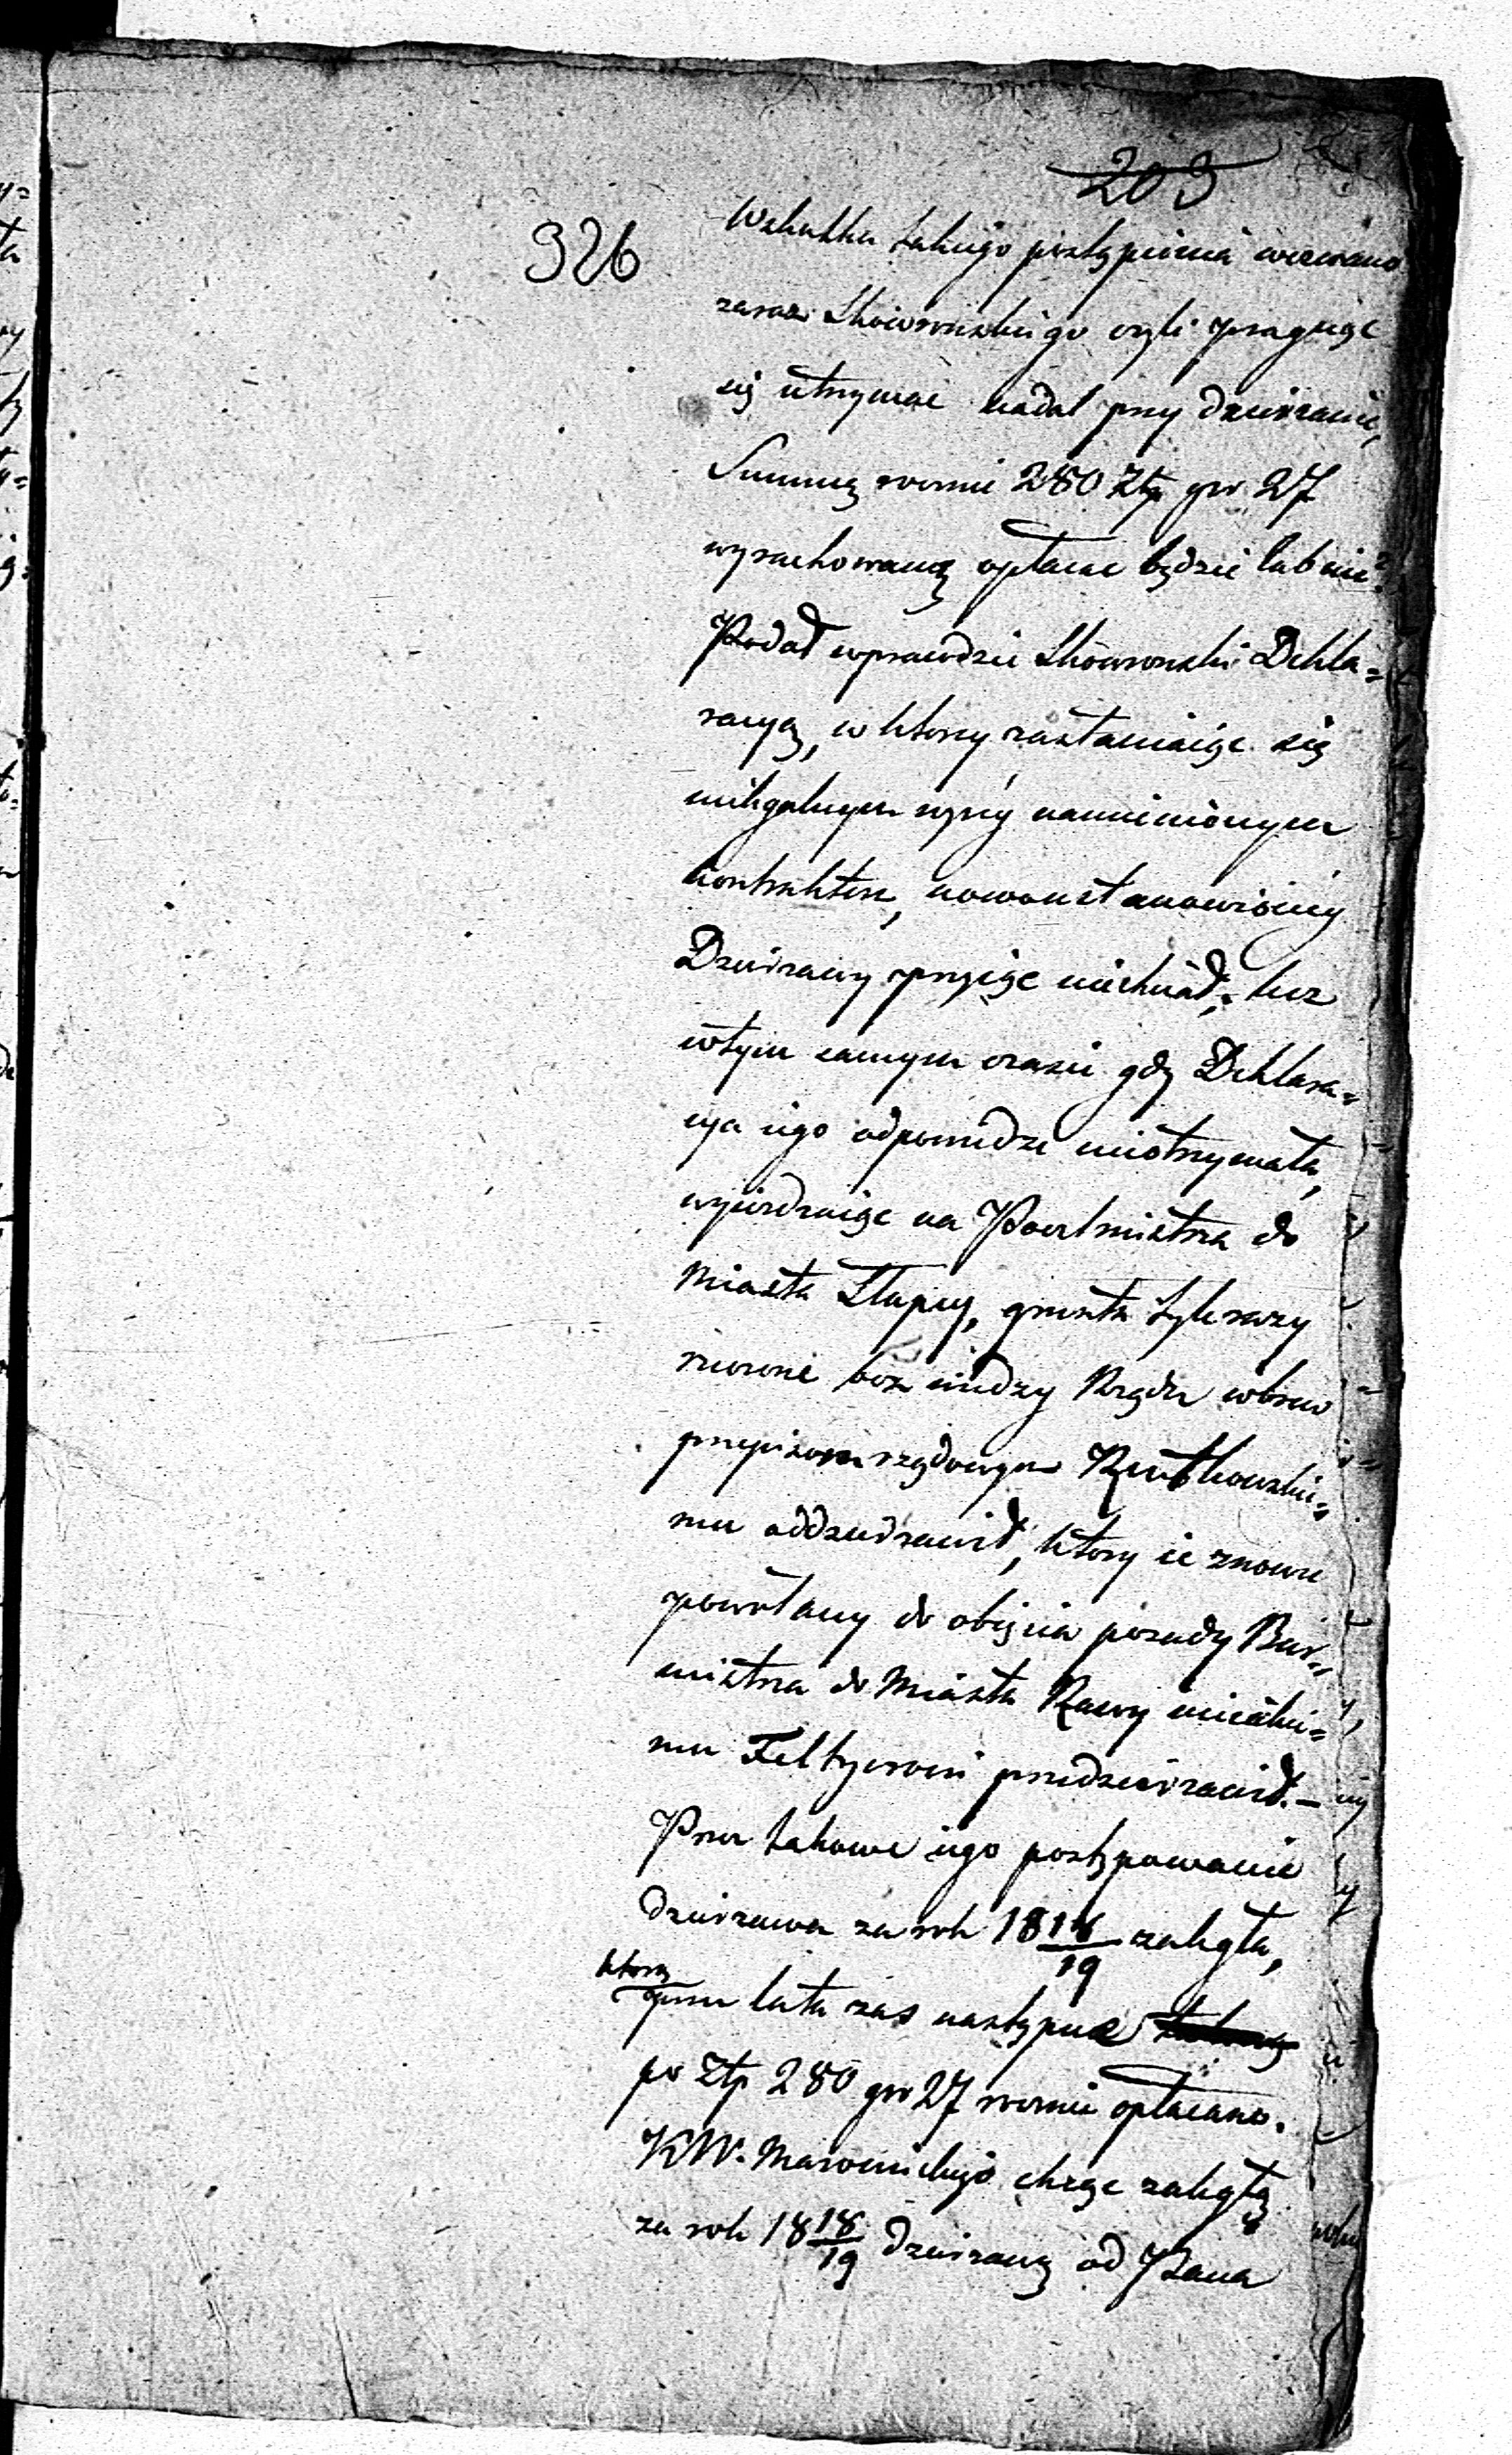 203
326
Wskutku takiego postąpienia wezwano
zaraz Skowronskiego czyli pragnąc
się utrzymać nadal przy dzierzawie,
Summę rocznie 280 Złp gr 27
wyrachowaną opłacac będzie lub nie?
Podał wprawdzie Skowronski Dekla=
racyą, w ktorey zasłaniaiąc się
nielegalnym wyżey namienionym
kontraktem, nowoustanowioney
Dzierzawy przyiąc niechciał; lecz
wtym samym czasie gdy Deklara=
cya iego odpowiedzi nieotrzymała,
wyieżdzaiąc na Poczłmistrza do
Miasta Słupcy, grunta tylerazy
rzeczone bez wiedzy Rządu wbrew
przepisom rządowym Rutkowskie=
mu oddzierzawił, ktory ie znowu
powołany do obięcia posady Bur=
mistrza do Miasta Rawy nieiakie=
mu Feltzerowi przedzierzawił. —
Przez takowe iego postępowanie
dzierzawa za rok 1818/19 zaległa,
ktorą
przez lata zas następne
po Złp 280 gr 27 rocznie opłacano.
KW. Mazowieckiego chcąc zaległą
za rok 1818/19 dzierzawę od Pana